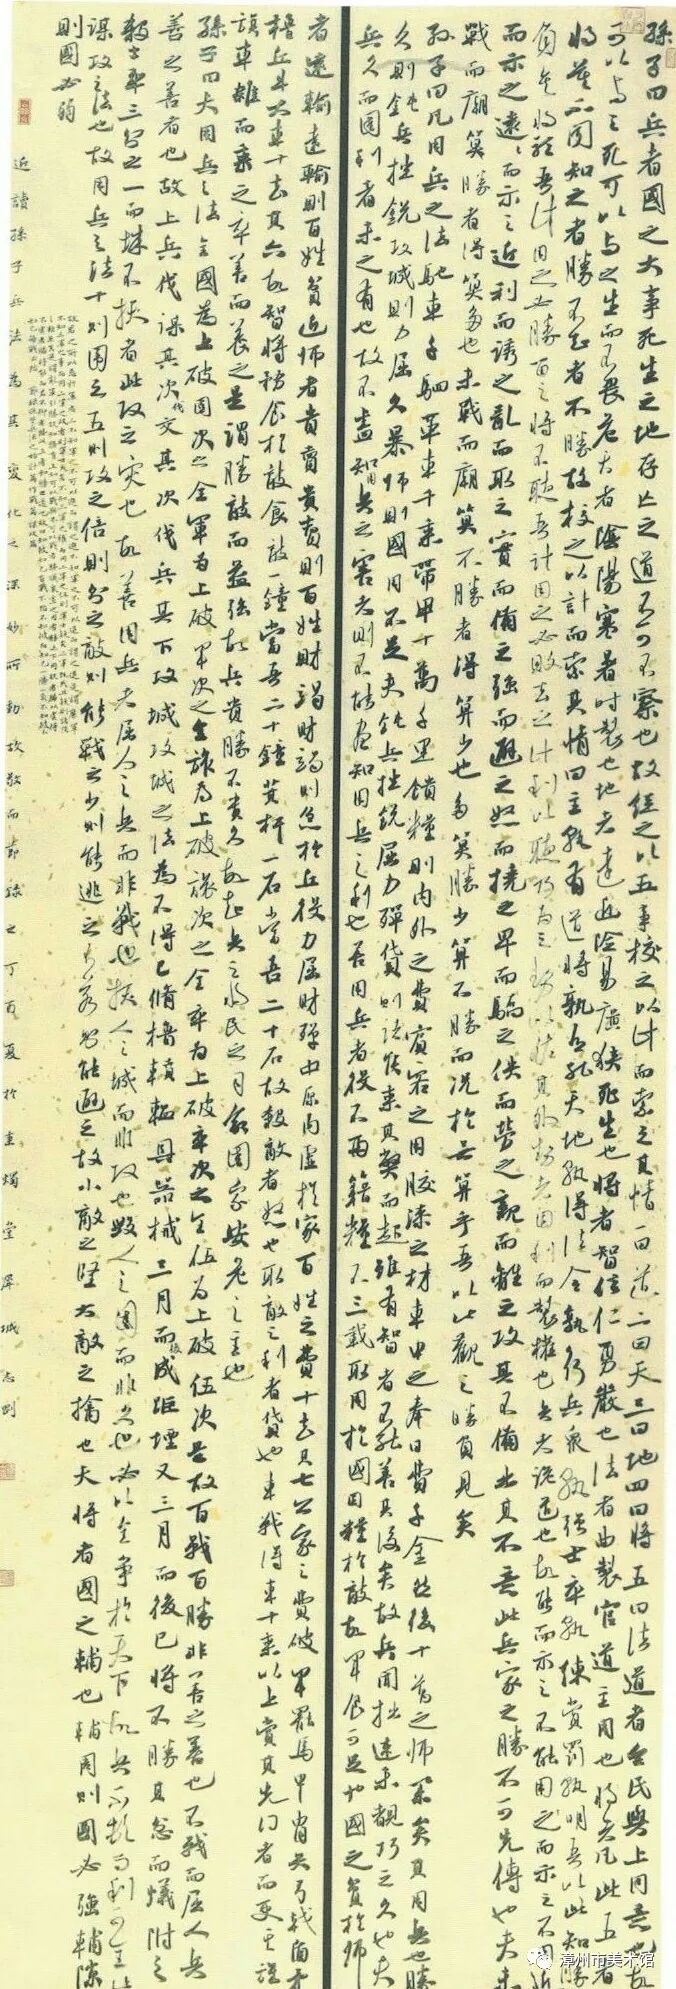 孫子曰兵者國之大事死生之地存亡之道不可不察也故經之以五事校之以計而索之其情一曰道二曰天三曰地四曰將五曰法道者令民與上同意也故
可以與之死可以與之生而不畏危天者陰陽寒暑時製也地者遠近險易廣狹死生也將者智信仁勇嚴也法者曲製官道主用也凡此五者
將莫不聞知之者勝不知者不勝故校之以計而索其情曰主孰有道將孰有能天地孰得法令孰行兵眾孰強士卒孰練賞罰孰明吾以此知勝
負矣將聽吾計用之必勝留之將不聽吾計用之必敗去之計利以聽乃為之勢以佐其外勢者因利而製權也兵者詭道也故能而示之不能用之而示之不用近
而示之遠遠而示之近利而誘之亂而取之實而備之強而避之怒而撓之卑而驕之佚而勞之親而離之攻其不備出其不意此兵家之勝不可先傳也夫未
戰而廟算勝者得算多也未戰而廟算不勝者得算少也多算勝少算不勝而況於無算乎吾以此觀之勝負見矣
孫子曰凡用兵之法馳車千駟革車千乘帶甲十萬千里饋糧則內外之費賓客之用膠漆之材車甲之奉日費千金然後十萬之師舉矣其用兵也勝
久則鈍兵挫銳攻城則力屈久暴師則國用不足夫鈍兵挫銳屈力殫貨則諸侯乘其弊而起雖有智者不能善其後矣故兵聞拙速未睹巧之久也夫
兵久而國利者未之有也故不盡知用兵之害者則不能盡知用兵之利也善用兵者役不再籍糧不三載取用於國因糧於敵故軍食可足也國之貧於師
者遠輸遠輸則百姓貧近師者貴賣貴賣則百姓財竭財竭則急於丘役力屈財殫中原內虛於家百姓之費十去其七公家之費破軍罷馬甲冑矢弓戟盾矛
櫓丘牛大車十去其六故智將務食於敵食敵一鍾當吾二十鍾萁杆一石當吾二十石故殺敵者怒也取敵之利者貨也車戰得車十乘以上賞其先得者而更其旌
旗車雜而乘之卒善而養之是謂勝敵而益強故兵貴勝不貴久故知兵之將民之司命國家安危之主也
孫子曰夫用兵之法全國為上破國次之全軍為上破軍次之全旅為上破旅次之全卒為上破卒次之全伍為上破伍次之是故百戰百勝非善之善也不戰而屈人兵
善之善者也故上兵伐謀其次伐交其次伐兵其下攻城攻城之法為不得已修櫓轒轀具器械三月而後成距堙又三月而後已將不勝其忿而蟻附之
殺士卒三分之一而城不拔者此攻之災也故善用兵者屈人之兵而非戰也拔人之城而非攻也毀人之國而非久也必以全爭於天下故兵不頓而利可全此
謀攻之法也故用兵之法十則圍之五則攻之倍則分之敵則能戰之少則能逃之不若則能避之故小敵之堅大敵之擒也夫將者國之輔也輔周則國必強輔隙
則國必弱
近讀孫子兵法為其變化之深妙所動故敬而節錄之丁酉夏於
漳州市美术馆